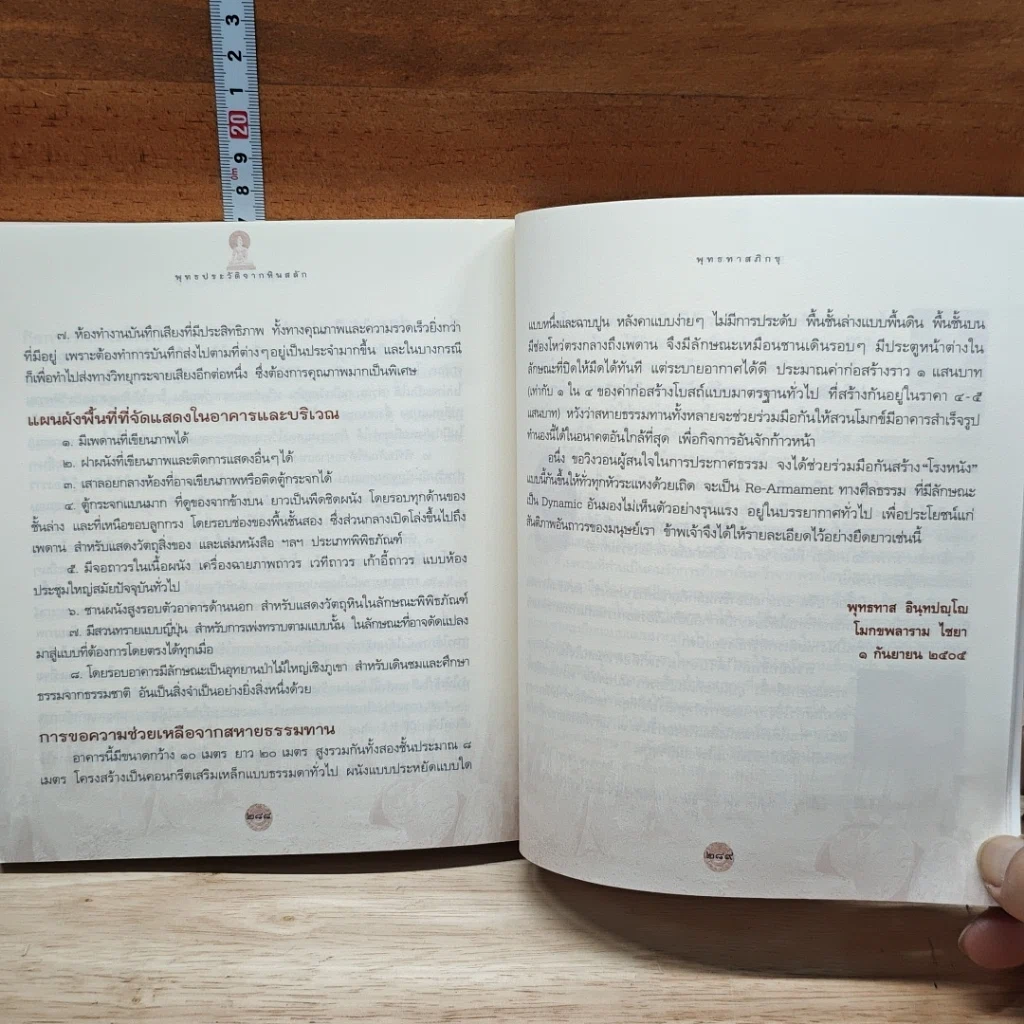 3
2
1
20
9
cm
8
พุทธประวัติจากหินสลัก
๗. ห้องทำงานบันทึกเสียงที่มีประสิทธิภาพ ทั้งทางคุณภาพและความรวดเร็วยิ่งกว่า
ที่มีอยู่ เพราะต้องทำการบันทึกส่งไปตามที่ต่างๆอยู่เป็นประจำมากขึ้น และในบางกรณี
ก็เพื่อทำไปส่งทางวิทยุกระจายเสียงอีกต่อหนึ่ง ซึ่งต้องการคุณภาพมากเป็นพิเศษ
แผนผังพื้นที่ที่จัดแสดงในอาคารและบริเวณ
๑. มีเพดานที่เขียนภาพได้
๒. ฝาผนังที่เขียนภาพและติดการแสดงอื่นๆได้
๓. เสาลอยกลางห้องที่อาจเขียนภาพหรือติดตู้กระจกได้
๔. ตู้กระจกแบนมาก ที่ดูของจากข้างบน ยาวเป็นพืดชิดผนัง โดยรอบทุกด้านของ
ชั้นล่าง และที่เหนือขอบลูกกรง โดยรอบช่องของพื้นชั้นสอง ซึ่งส่วนกลางเปิดโล่งขึ้นไปถึง
เพดาน สำหรับแสดงวัตถุสิ่งของ และเล่มหนังสือ ฯลฯ ประเภทพิพิธภัณฑ์
๕. มีจอถาวรในเนื้อผนัง เครื่องฉายภาพถาวร เวทีถาวร เก้าอี้ถาวร แบบห้อง
ประชุมใหญ่สมัยปัจจุบันทั่วไป
๖. ชานผนังสูงรอบตัวอาคารด้านนอก สำหรับแสดงวัตถุหินในลักษณะพิพิธภัณฑ์
๗. มีสวนทรายแบบญี่ปุ่น สำหรับการเพ่งทราบตามแบบนั้น ในลักษณะที่อาจดัดแปลง
มาสู่แบบที่ต้องการโดยตรงได้ทุกเมื่อ
๘. โดยรอบอาคารมีลักษณะเป็นอุทยานป่าไม้ใหญ่เชิงภูเขา สำหรับเดินชมและศึกษา
ธรรมจากธรรมชาติ อันเป็นสิ่งจำเป็นอย่างยิ่งสิ่งหนึ่งด้วย
การขอความช่วยเหลือจากสหายธรรมทาน
อาคารนี้มีขนาดกว้าง ๑๐ เมตร ยาว ๒๐ เมตร สูงรวมกันทั้งสองชั้นประมาณ ๘
เมตร โครงสร้างเป็นคอนกรีตเสริมเหล็กแบบธรรมดาทั่วไป ผนังแบบประหยัดแบบใด
๒๘๘
พุทธทาสภิกขุ
แบบหนึ่งและฉาบปูน หลังคาแบบง่ายๆ ไม่มีการประดับ พื้นชั้นล่างแบบพื้นดิน พื้นชั้นบน
มีช่องโหว่ตรงกลางถึงเพดาน จึงมีลักษณะเหมือนชานเดินรอบๆ มีประตูหน้าต่างใน
ลักษณะที่ปิดให้มืดได้ทันที แต่ระบายอากาศได้ดี ประมาณค่าก่อสร้างราว ๑ แสนบาท
(เท่ากับ ๑ ใน ๔ ของค่าก่อสร้างโบสถ์แบบมาตรฐานทั่วไป ที่สร้างกันอยู่ในราคา ๔-๕
แสนบาท) หวังว่าสหายธรรมทานทั้งหลายจะช่วยร่วมมือกันให้สวนโมกข์มีอาคารสำเร็จรูป
ทำนองนี้ได้ในอนาคตอันใกล้ที่สุด เพื่อกิจการอันจักก้าวหน้า
อนึ่ง ขอวิงวอนผู้สนใจในการประกาศธรรม จงได้ช่วยร่วมมือกันสร้าง “โรงหนัง”
แบบนี้กันขึ้นให้ทั่วทุกหัวระแหงด้วยเถิด จะเป็น Re-Armament ทางศีลธรรม ที่มีลักษณะ
เป็น Dynamic อันมองไม่เห็นตัวอย่างรุนแรง อยู่ในบรรยากาศทั่วไป เพื่อประโยชน์แก่
สันติภาพอันถาวรของมนุษย์เรา ข้าพเจ้าจึงได้ให้รายละเอียดไว้อย่างยืดยาวเช่นนี้
พุทธทาส อินฺทปญฺโญ
โมกขพลาราม ไชยา
๑ กันยายน ๒๕๐๕
๒๘๙